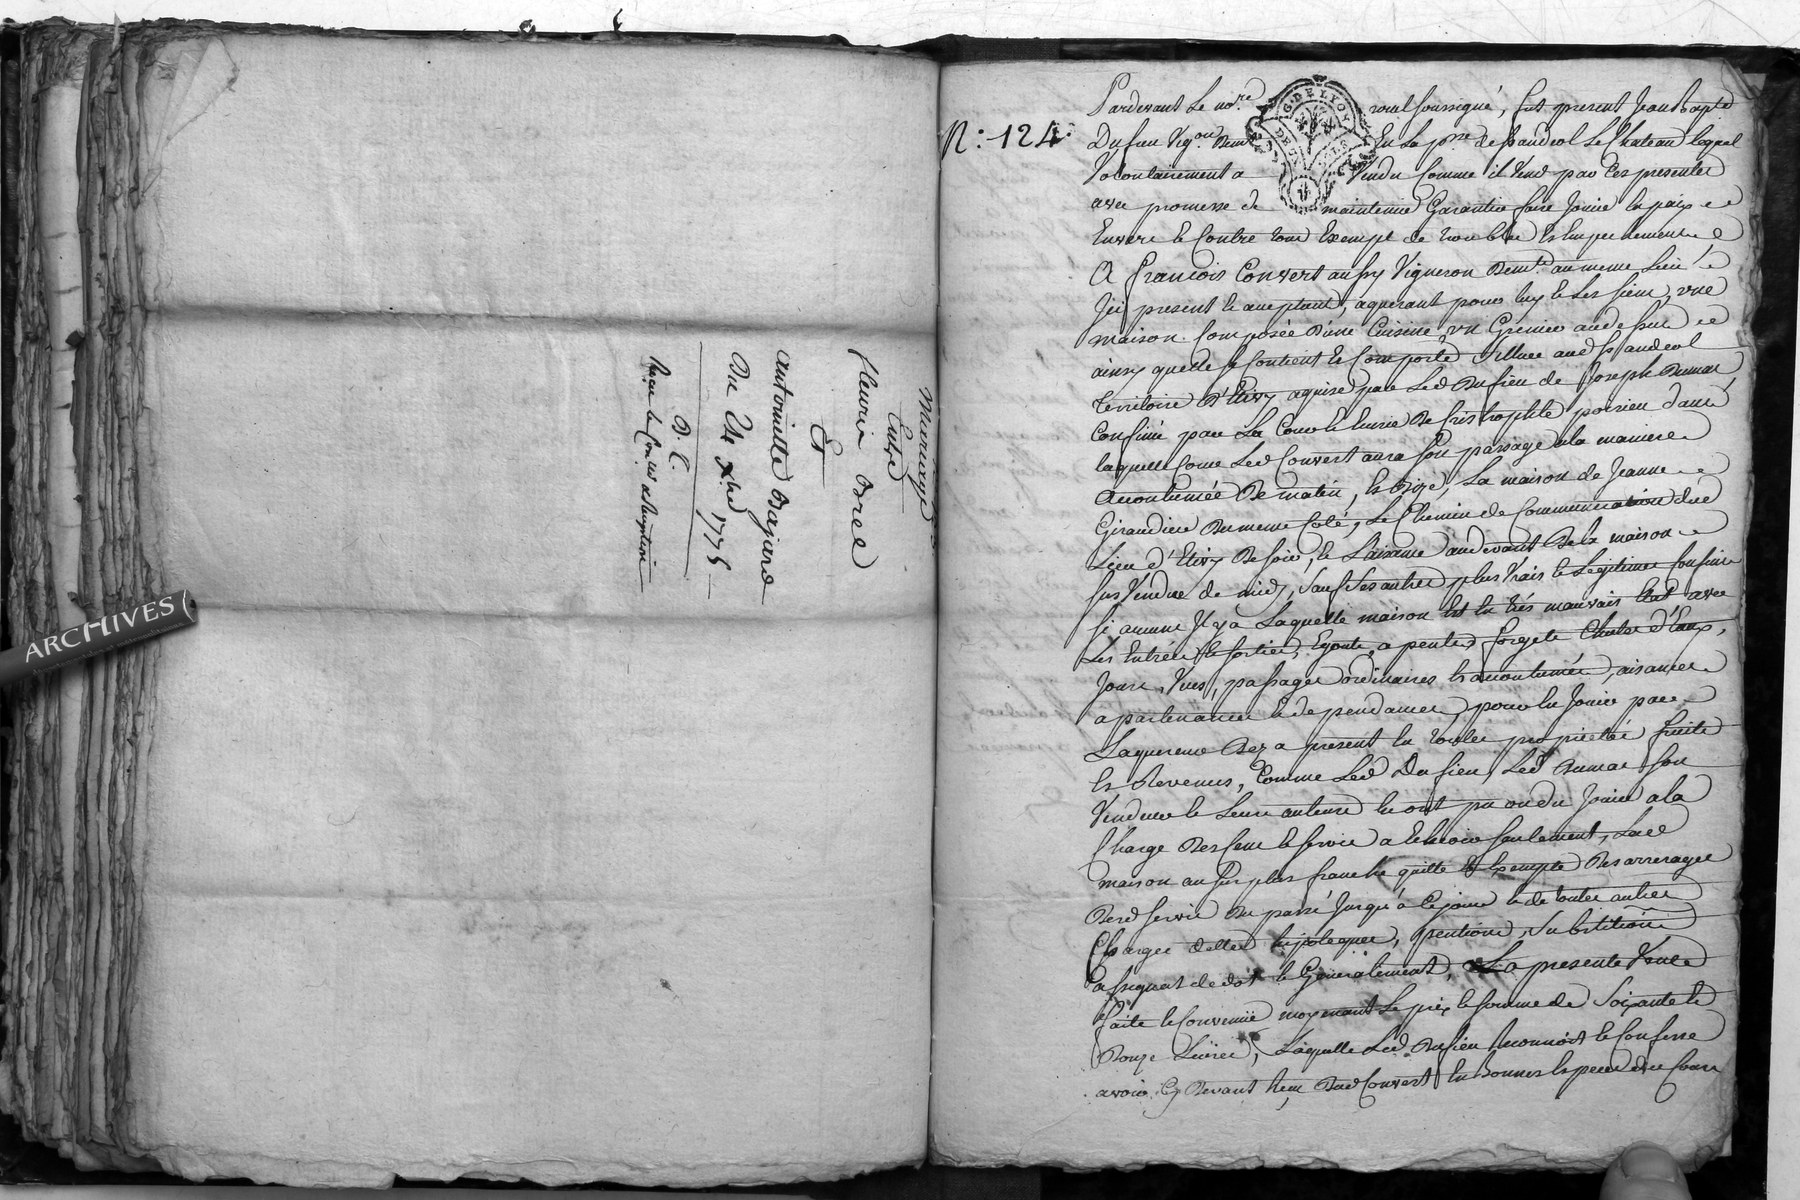 Mariage
Entre
fleurie Dorel
Et
antoinette Dajard
Du 24 Xbre 1775
D. C.
ARCHIVES
N.: 124.
Pardevant Le nore roial soussigné, fut present Jean Bapte
Dufieu Vigon Demt En La psse de st andeol Le Chateau lequel
Volontairement a Vendu Comme il Vend par Ces presentes
avec promesse de maintenir Garantir faire Jouir en paix
Envers et Contre tous Exempt de troubles et Empechements
A francois Convert aussy Vigneron Demt au meme Lieu
Jci present et aceptant, aquerant pour luy et Les siens, une
maison Composée D'une Cuisine, un Grenier au dessus
ainsy quelle se Contient et Comporte Situee aud st andeol
territoire D'Etivy aquise par Led Dufieu de Joseph Dumas
Confinée par La Cour et de Cristophle poirieu dans
laquelle Cour Led Convert aura son passage a la maniere
acoutumée De matin, et Bize, La maison de Jeanne
Giraudier Du meme Coté, Le Chemin de Communication du
Lieu d'Etivy De soir, et Laisance au devant De la maison
sus Vendue de midy, Sauf Ses autres plus Vrais et Legitimes Confins
si aucuns Jl y a Laquelle maison Est En très mauvais Etat avec
Ses Entrées et sorties, Egouts, apentes, forgets Chutes d'Eaux,
Jours, Vues, passages ordinaires et acoutumés, aisances
apartenances et dependances, pour En Jouir par
Laquereur Dez a present En toutes proprietés fruits
Et Revenus, Comme Led Dufieu, Led Dumas Son
Vendeur et Leurs auteurs En ont pu ou du Jouir a la
Charge Des Cens et Servis a Echeoir seulement, Lad
maison au surplus franche quitte et Exempte Des arrerages
Desd Servis Du passé Jusqu'à Ce jour et de toutes autres
Charges dettes hipoteques, pentions, Substitutions
assignat de dot et Generalement, La presente Vente
faite et Convenüe moyenant Le prix et Somme de Soixante et
Douze Livres, Laquelle Led Dufieu Reconnoit et Confesse
avoir Cy Devant Reçu Dud Convert En Bonnes Especes du Cours